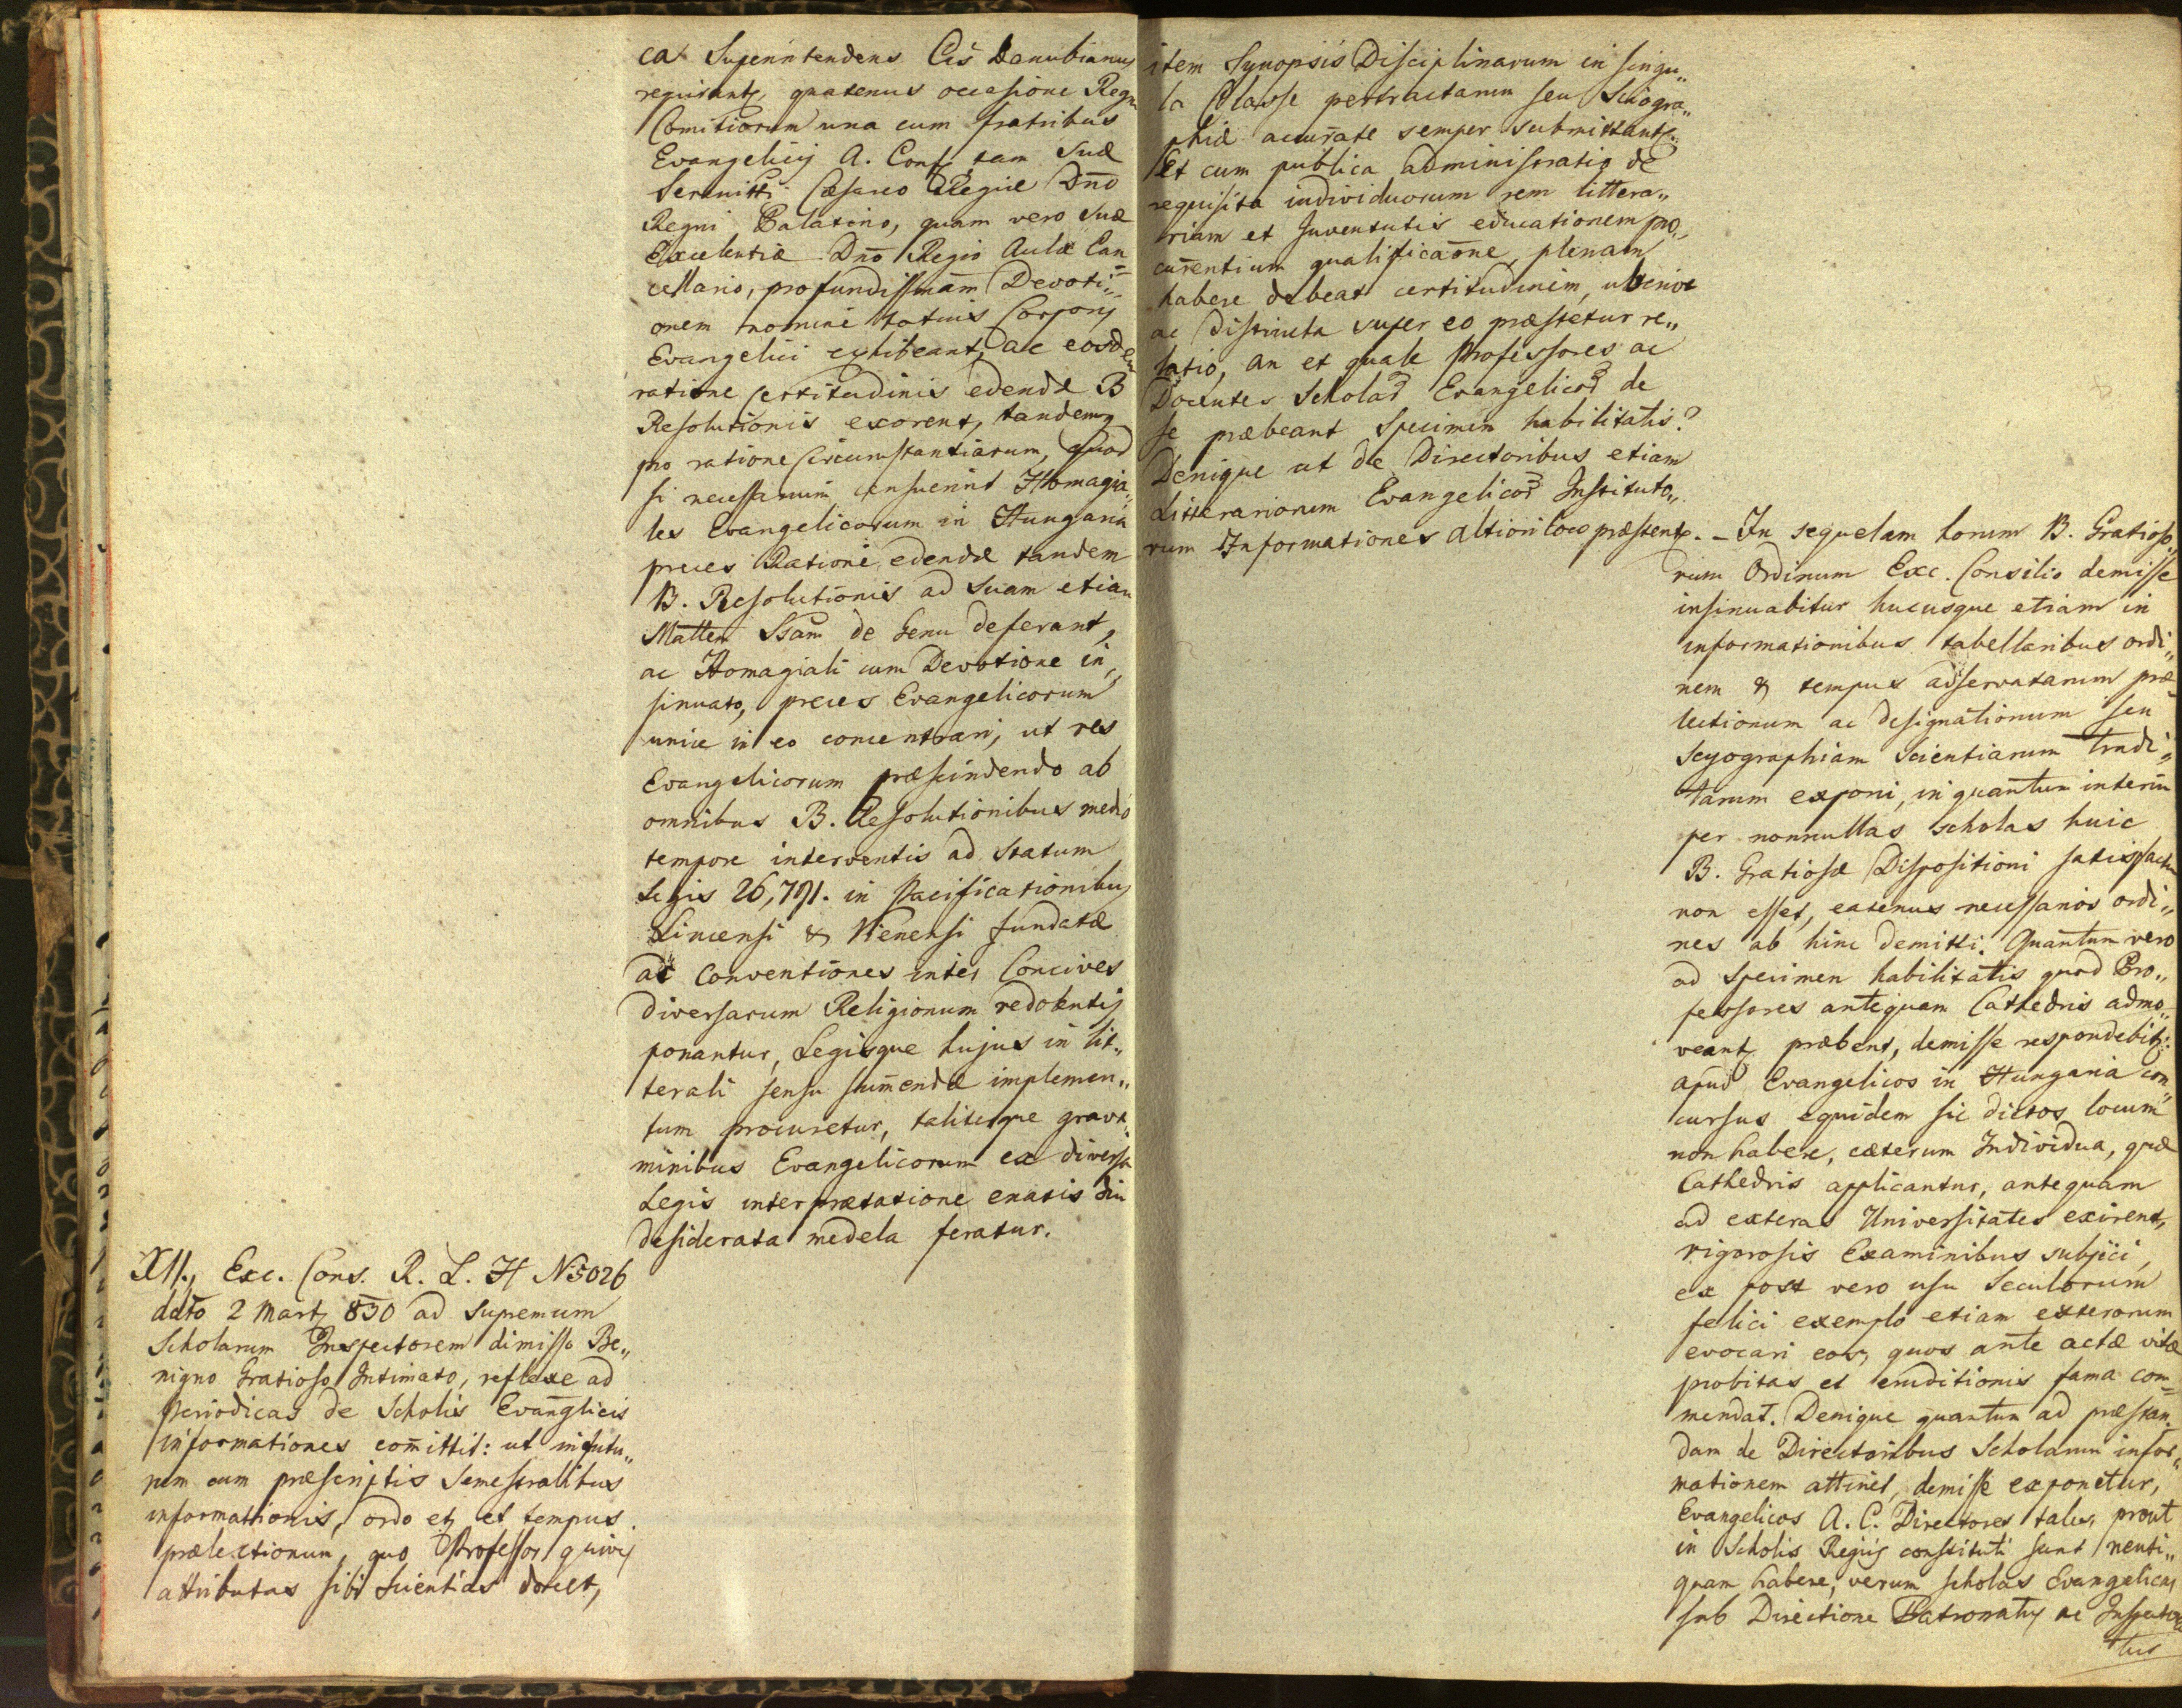 ca Superintendens Cis Danubianus
requirant, quatenus occasione Regni
Comitiorum una cum fratribus
Evangelicis A. Conf. tam Suæ
Serenitti Cæsareo Regiæ Dno
Regni Palatino, quam vero Suæ
Excellentiæ Dno Regio Aulæ Can=
cellario, profundissimam Devoti„
onem nomine totius Corporis
Evangelici exhibeant, ac eosdem
ratione certitudinis edendæ B
Resolutionis exorent, tandemq
pro ratione Circumstantiarum, quod
si necessarium censuerint Homagia„
les Evangelicorum in Hungaria
preces Ratione edendæ tandem
B. Resolutionis ad Suam etiam
Mattem Ssam de Genu deferant,
ac Homagiali cum Devotione in„
sinuato, preces Evangelicorum
unice in eo concentrari, ut res
Evangelicorum præscindendo ab
omnibus B. Resolutionibus medio
tempore interventis ad Statum
Legis 26,791. in Pacificationibus
Lincensi & Vienensi fundatæ
ac Conventiones inter Concives
diversarum Religionum redolentis
ponantur, Legisque hujus in lit„
terali sensu sumendæ implemen„
tum procuretur, taliterque grava„
minibus Evangelicorum ex diversa
Legis interpretatione enatis diu
desiderata medela feratur.
XII., Exc. Cons. R. L. H N 5026
ddto 2 Mart. 830 ad Supremum
Scholarum Inspectorem dimisso Be„
nigno Gratioso Intimato, reflexe ad
periodicas de Scholis Evanglicis
informationes comittit: ut in futu„
rum cum præscriptis Semestralibus
informationis, ordo et et tempus
prælectionum, quo Professor quivis
attributas sibi Scientias docet,
item Synopsis Disciplinarum in singu„
la Classe pertractarum seu Sciogra„
phiæ accurate semper submittantr
Et cum publica administratio de
requisita individuorum rem littera„
riam et Juventutis educationem pro„
curentium qualificaone, plenam
habere debeat certitudinem, uberior
ac distincta super eo præstetur re„
latio, an et quale Professores ac
Docentes Scholar Evangelicor de
se præbeant Specimen habilitatis?
Denique ut de Directoribus etiam
Litterariorum Evangelicor Instituto„
rum Informationes altiori loco præstentr. – In sequelam horum B. Gratioso
rum Ordinum Exc. Consilio demisse
insinuabitur hucusque etiam in
informationibus tabellaribus ordi„
nem & tempus adservatarum præ„
lectionum ac designationum seu
Scyographiam Scientiarum tradi„
tarum exponi, in quantum interim
per nonnullas scholas huic
B. Gratiosæ Dispositioni satisfactum
non esset, eatenus necessarios ordi„
nes ab hinc demitti. Quantum vero
ad Specimen habilitatis quod Pro„
fessores antequam Cathedris admo„
veantr præbent, demisse respondebitr:
apud Evangelicos in Hungaria con„
cursus equidem sic dictos locum
non habere, cæterum Individua, quæ
Cathedris applicantur, antequam
ad exteras Universitates exirent,
rigorosis Examinibus subjici,
ex post vero usu Seculorum
felici exemplo etiam exterorum
evocari eos, quos ante actæ vitæ
probitas et eruditionis fama com=
mendat. Denique quantum ad præstan„
dam de Directoribus Scholarum infor„
mationem attinet, demisse exponetur,
Evangelicos A. C. Directores tales, prout
in Scholis Regiis constituti sunt neuti„
quam habere, verum scholas Evangelicas
sub Directione Patronatus ac Inspectora
tus